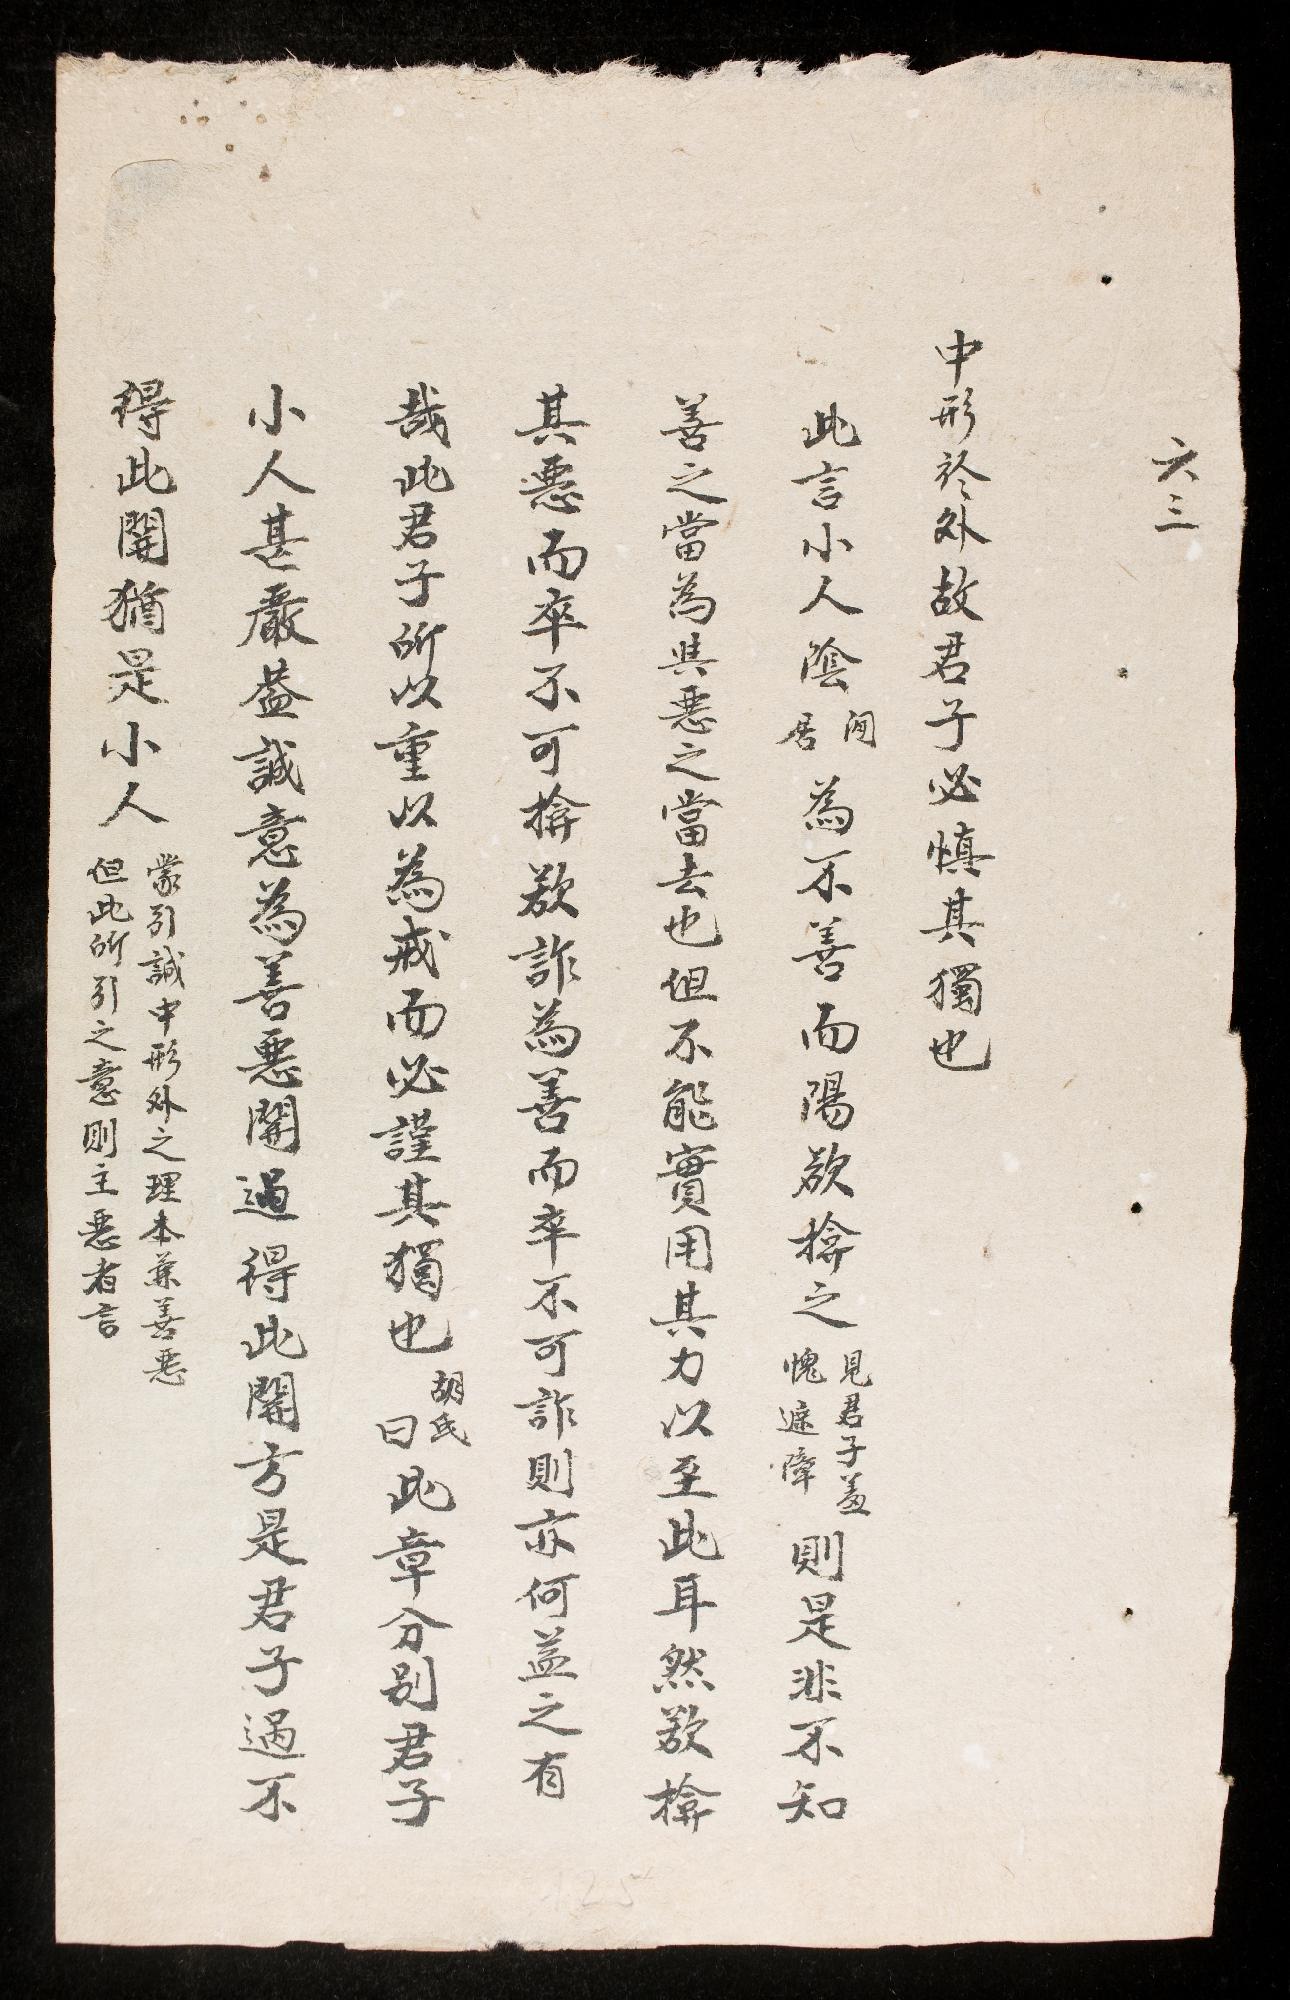 六三
中形於外故君子必慎其獨也
此言小人陰閒居為不善而陽欲揜之見君子羞愧遮障則是非不知
善之當為與惡之當去也但不能實用其力以至此耳然欲揜
其惡而卒不可揜欲詐為善而卒不可詐則亦何益之有
哉此君子所以重以為戒而必謹其獨也胡氏曰此章分别君子
小人甚嚴盖誠意為善惡關過得此關方是君子過不
得此關猶是小人蒙引誠中形外之理本兼善惡
但此所引之意則主惡者言
125